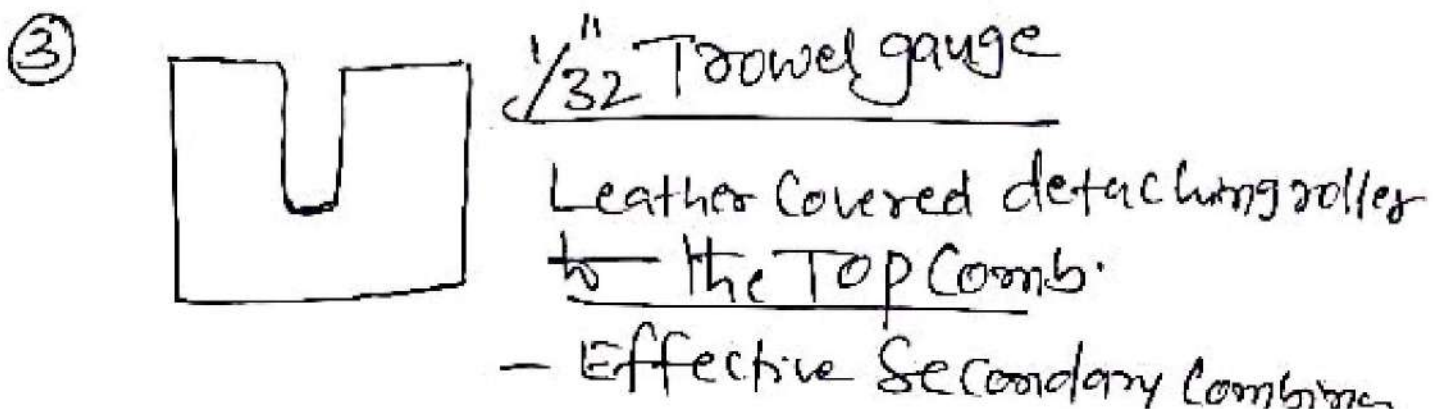 ③
1/32" Trowel gauge
Leather Covered detaching roller
to the Top Comb.
- Effective Secondary Combing